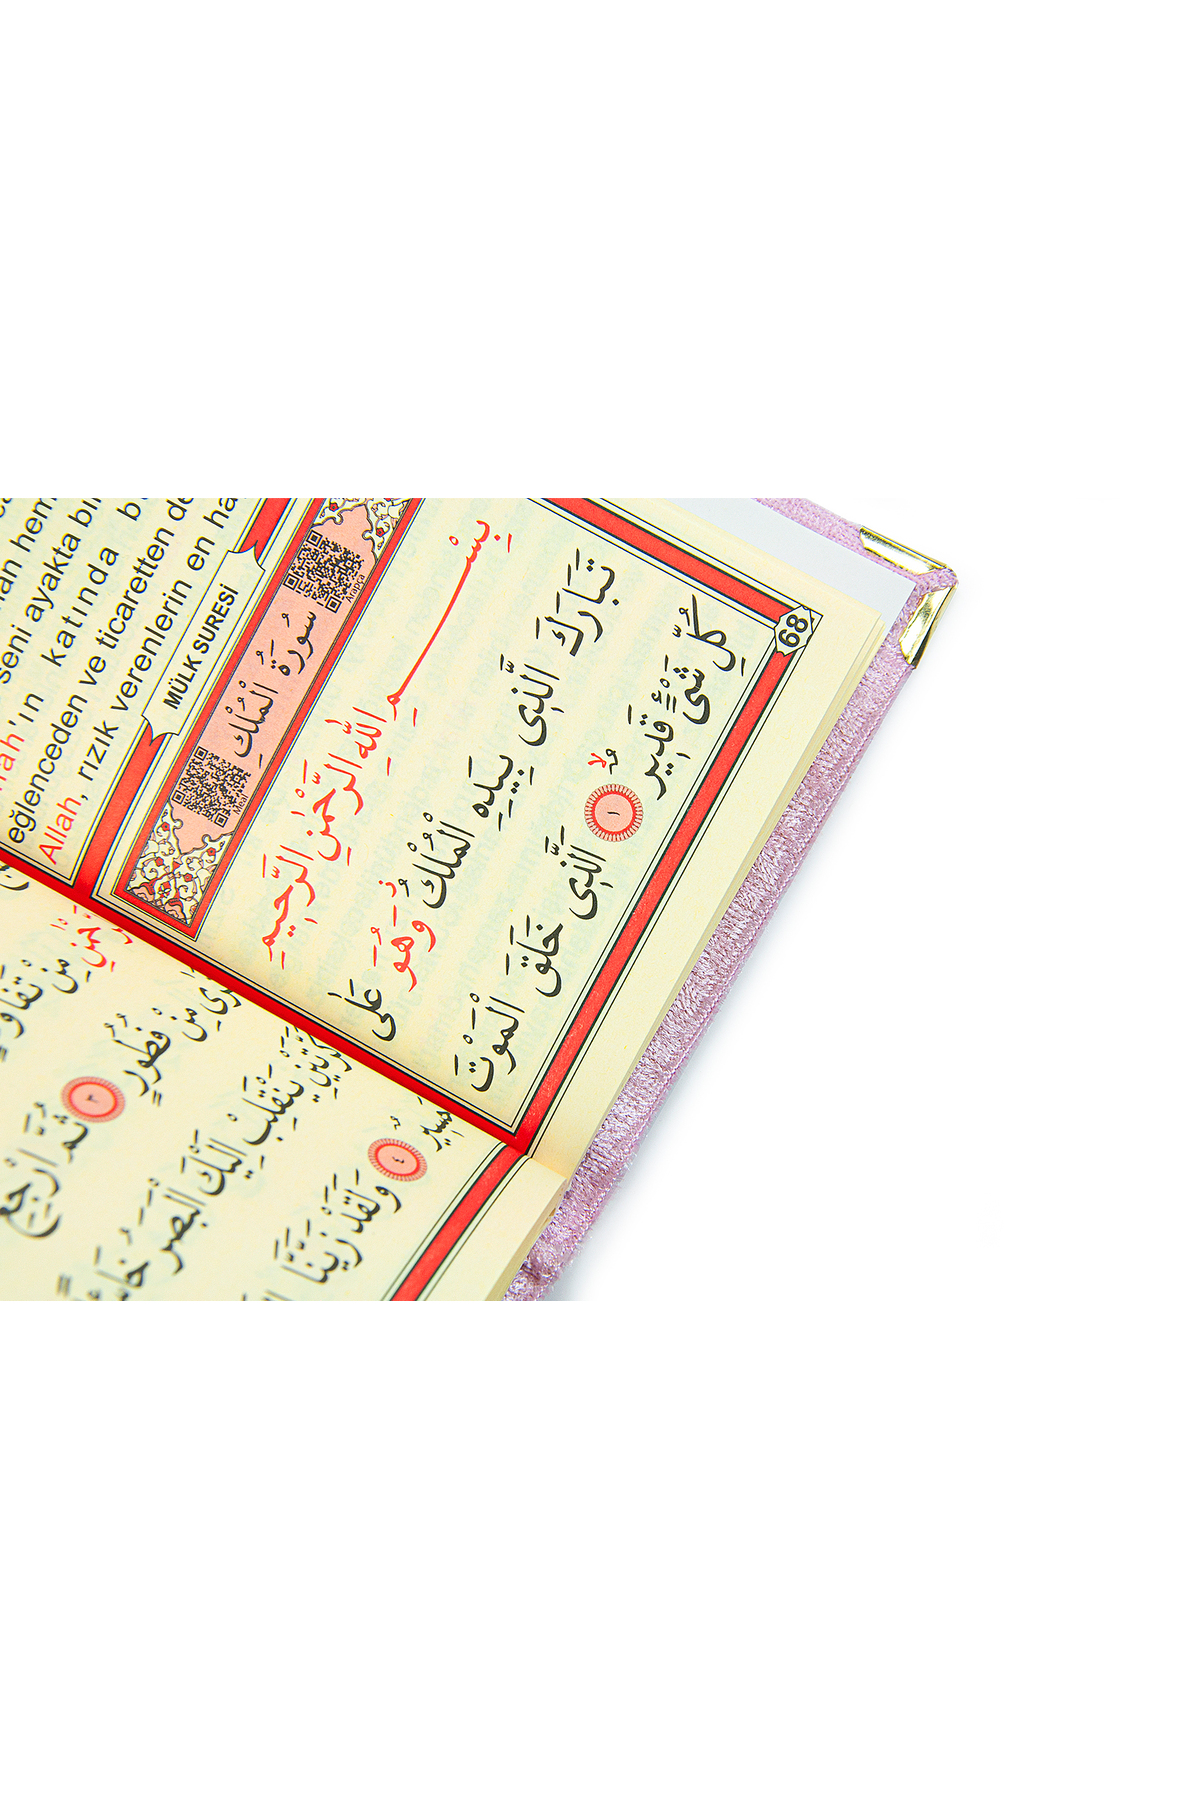 seni ayakta bin
katında
eğlenceden ve ticaretten de
Allah, rızık verenlerin en ha
MÜLK SURESİ
Arapça
سُورَةُ الْمُلْكِ
Meal
بِسْمِ اللّٰهِ الرَّحْمٰنِ الرَّحِيمِ
تَبَارَكَ الَّذِى بِيَدِهِ الْمُلْكُ وَهُوَ عَلٰى
كُلِّ شَىْءٍ قَدِيرٌ ۙ ﴿١﴾ اَلَّذِى خَلَقَ الْمَوْتَ
68
مِنْ تَفَاوُتٍ
مِنْ فُطُورٍ ﴿٣﴾ ثُمَّ ارْجِعِ
يَنْقَلِبْ اِلَيْكَ الْبَصَرُ
﴿٤﴾ وَلَقَدْ زَيَّنَّا